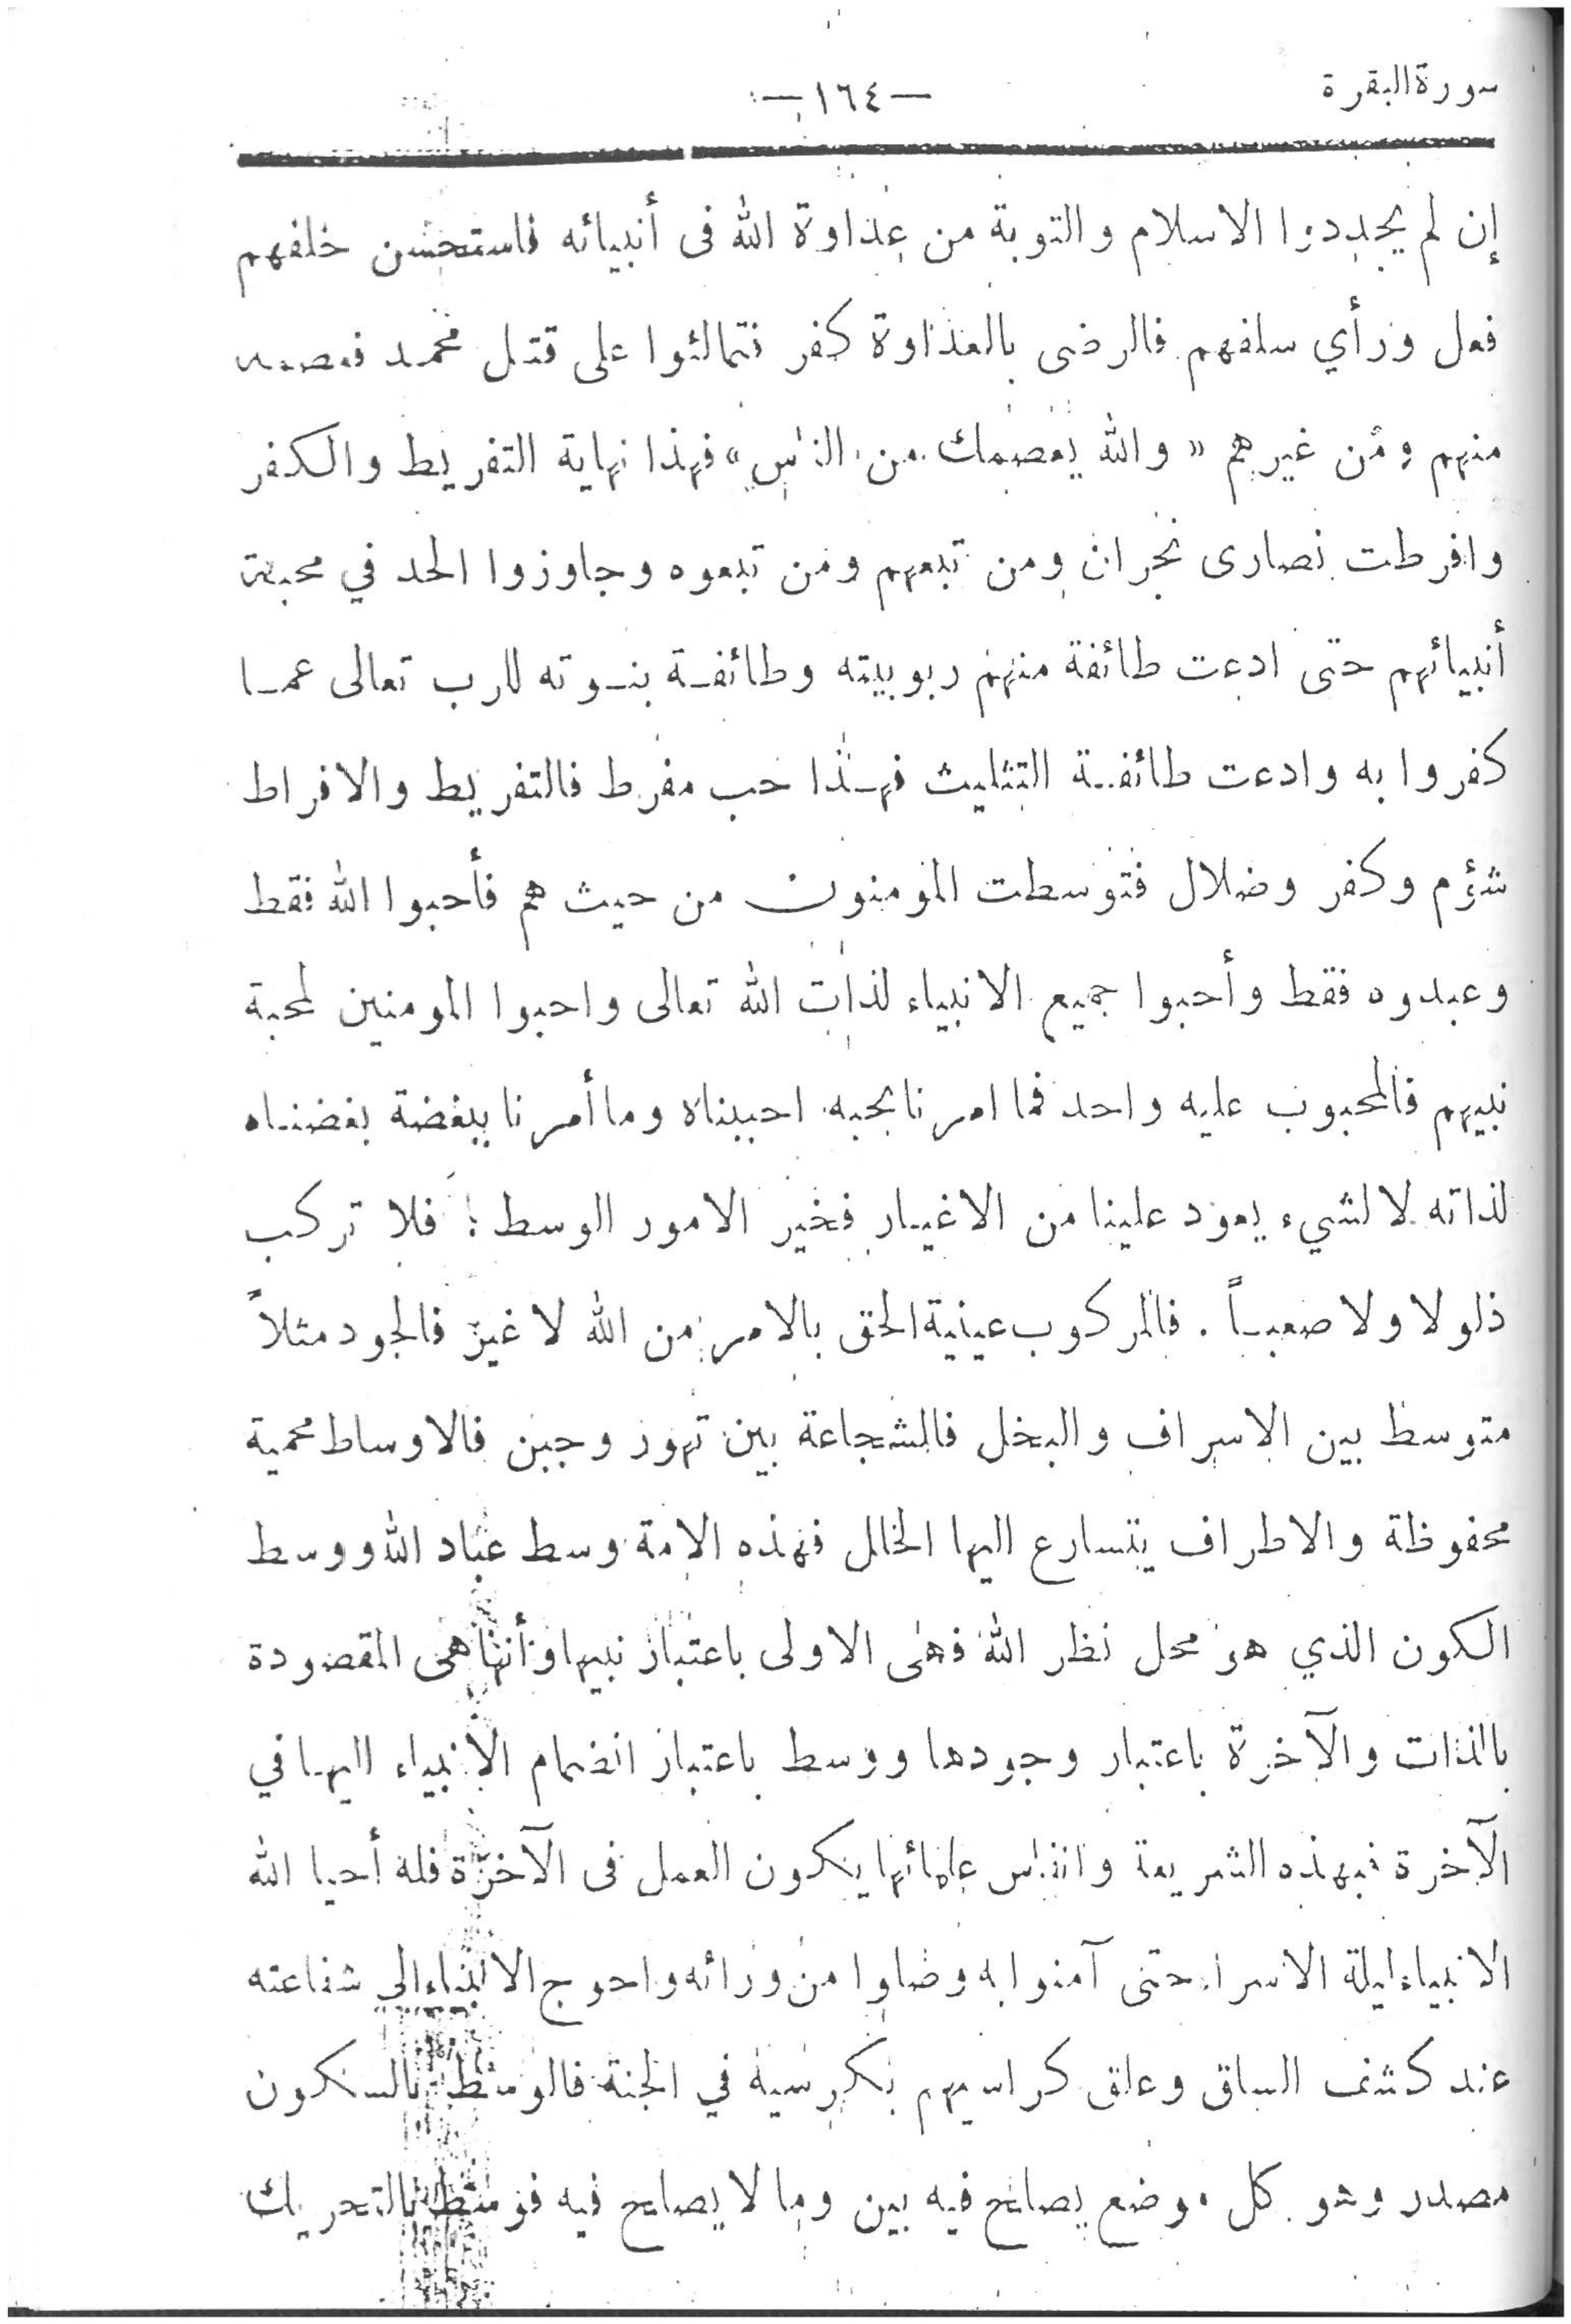 سورة البقرة
—١٦٤—
إن لم يجددوا الاسلام والتوبة من عداوة الله فى أنبيائه فاستحسن خلفهم
فعل ورأي سلفهم فالرضى بالعداوة كفر فتمالئوا على قتل محمد فعصمه
منهم ومن غيرهم «والله يعصمك من الناس» فهذا نهاية التفريط والكفر
وافرطت نصارى نجران ومن تبعهم ومن تبعوه وجاوزوا الحد في محبة
أنبيائهم حتى ادعت طائفة منهم ربوبيته وطائفة بنوته للرب تعالى عما
كفروا به وادعت طائفة التثليث فهذا حب مفرط فالتفريط والافراط
شؤم وكفر وضلال فتوسطت المومنون من حيث هم فأحبوا الله فقط
وعبدوه فقط وأحبوا جميع الانبياء لذات الله تعالى واحبوا المومنين لمحبة
نبيهم فالمحبوب عليه واحد فما امرنا بحبه احببناه وما أمرنا ببغضة بغضناه
لذاته لا لشيء يعود علينا من الاغيار فخير الامور الوسط: فلا تركب
ذلولا ولا صعباً. فالمركوب عينية الحق بالامر من الله لا غير فالجود مثلاً
متوسط بين الاسراف والبخل فالشجاعة بين تهور وجبن فالاوساط محمية
محفوظة والاطراف يتسارع اليها الخلل فهذه الامة وسط عباد الله ووسط
الكون الذي هو محل نظر الله فهى الاولى باعتبار نبيها وأنها هى المقصودة
بالذات والآخرة باعتبار وجودها ووسط باعتبار انضمام الانبياء اليها في
الآخرة فبهذه الشريعة وانفاس علمائها يكون العمل فى الآخرة فله أحيا الله
الانبياء ليلة الاسراء حتى آمنوا به وصلوا من ورائه واحوج الانبياء الى شفاعته
عند كشف الساق وعلق كراسيهم بكرسيه في الجنة فالوسط بالسكون
مصدر وهو كل موضع يصلح فيه بين وما لا يصلح فيه فوسط بالتحريك